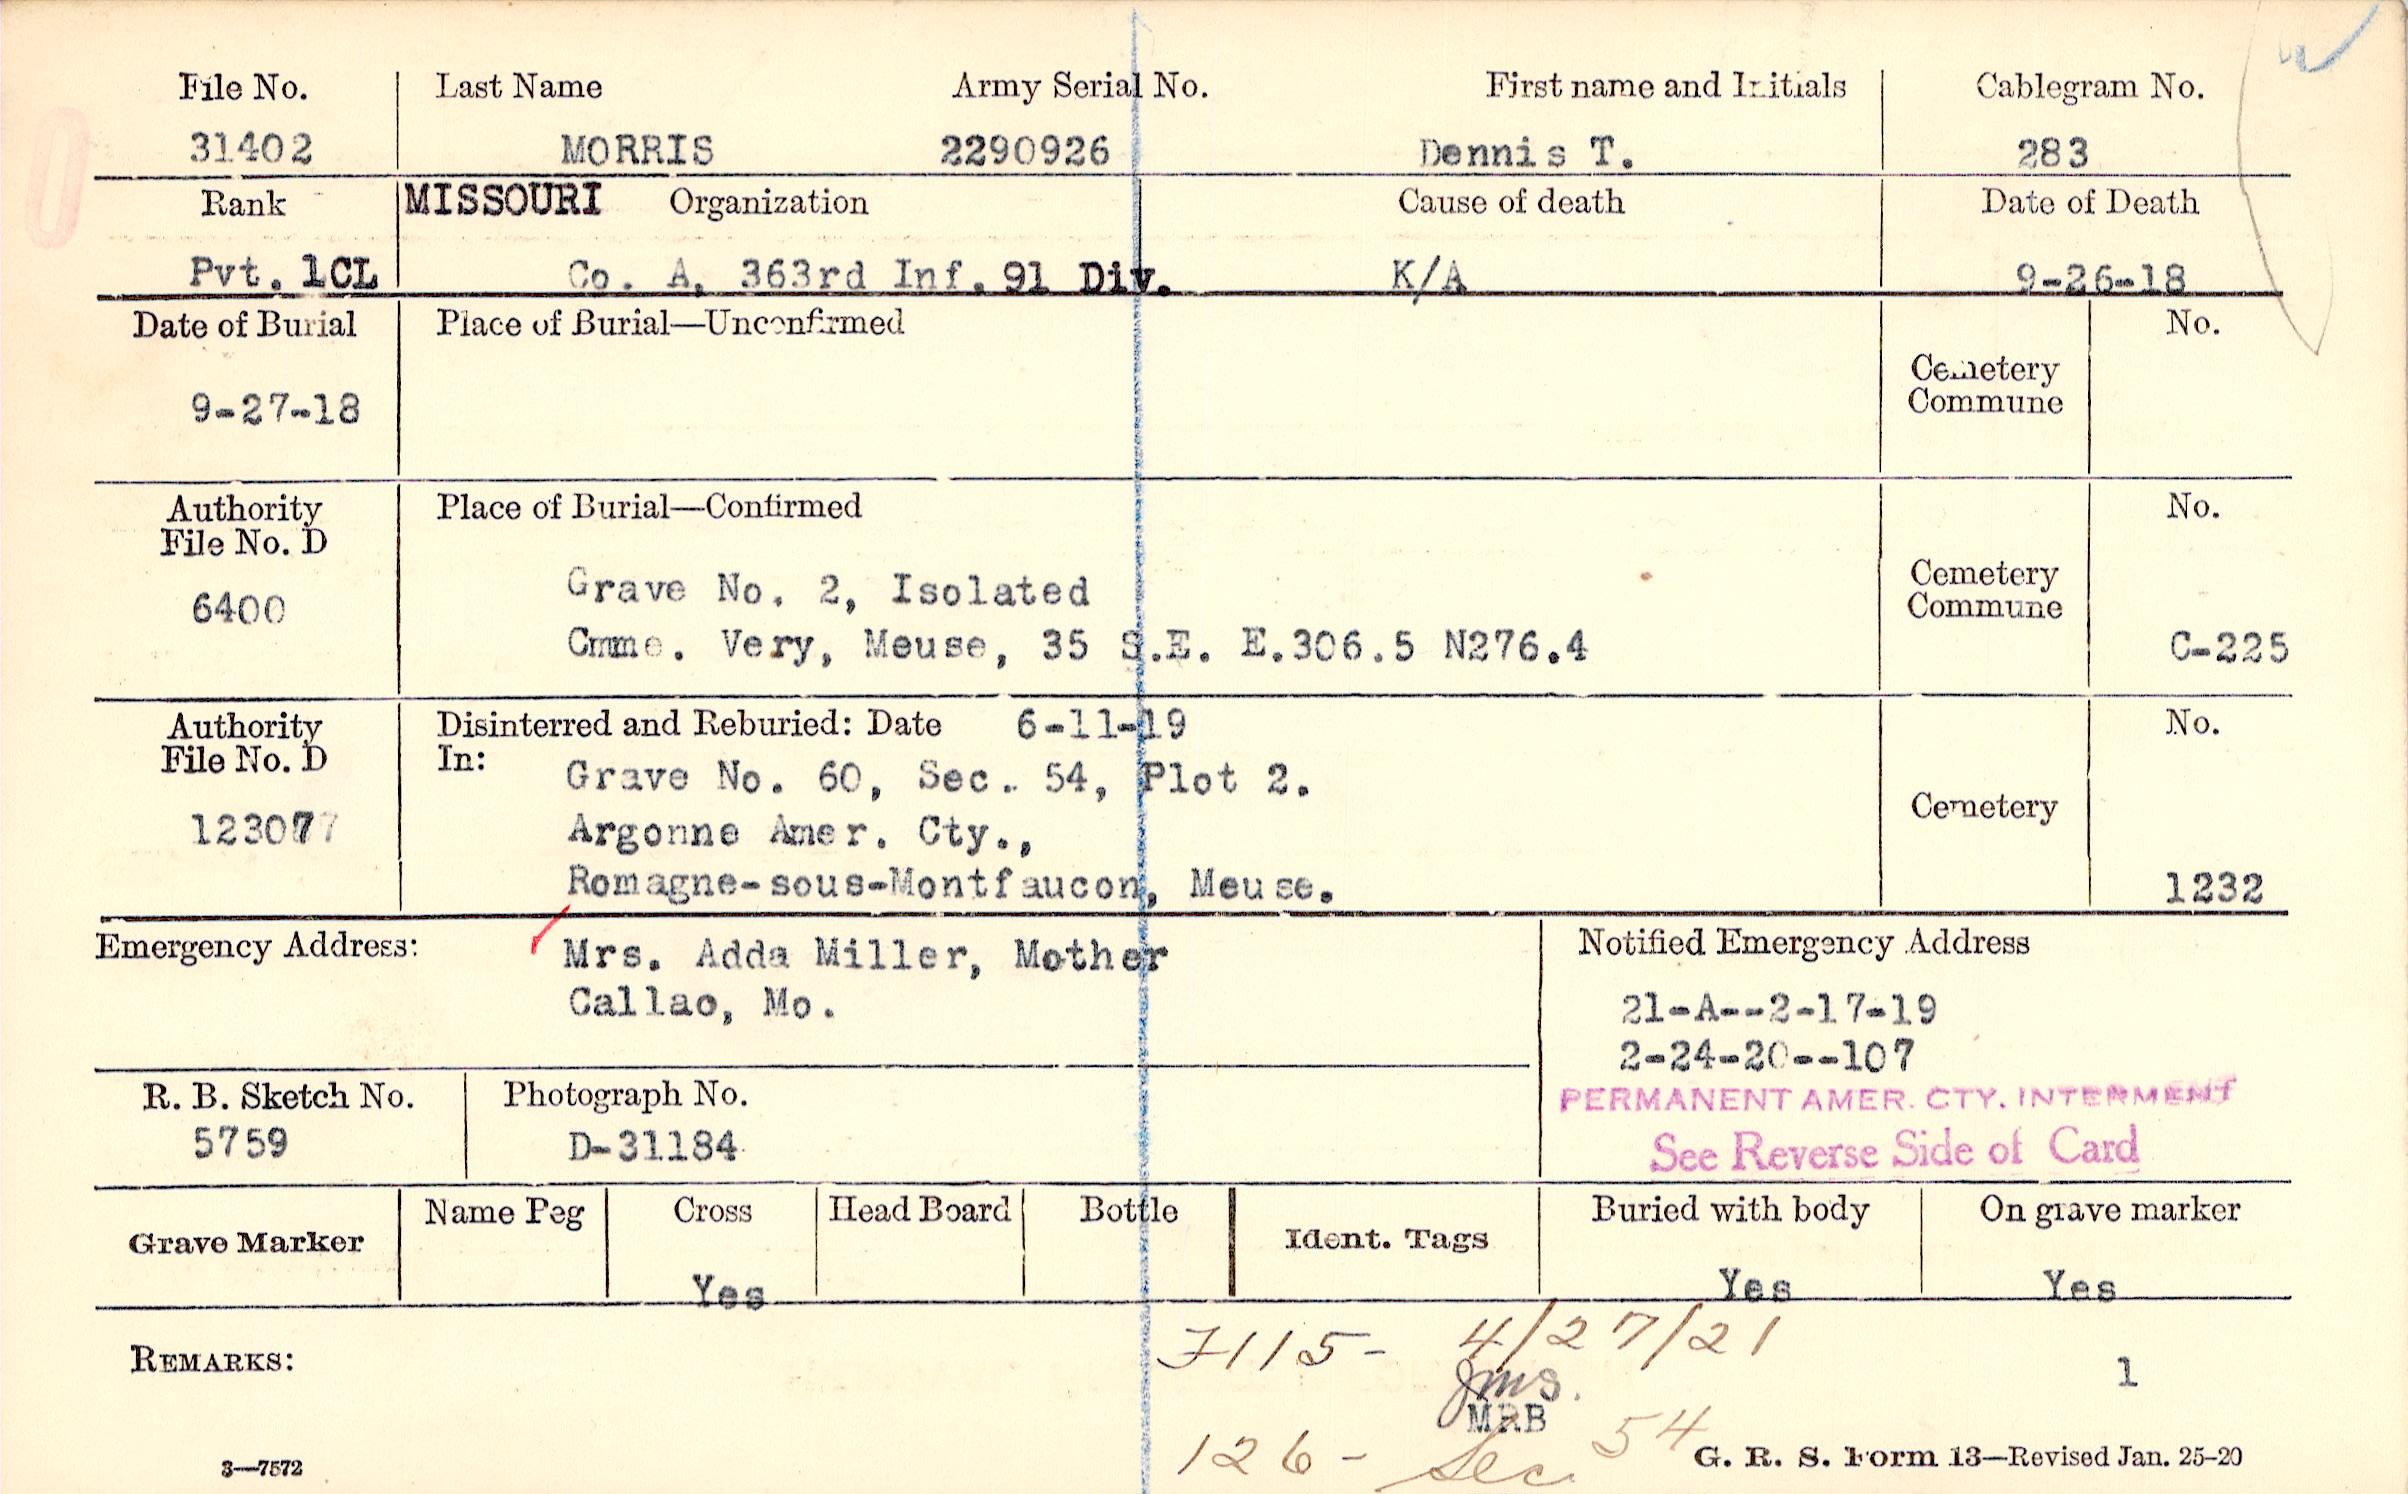 File No. Last Name Army Serial No. First name and Initials Cablegram No.
31402 MORRIS 2290926 Dennis T. 283
Rank MISSOURI Organization Cause of death Date of Death
Pvt. 1CL Co. A, 363rd Inf. 91 Div. K/A 9-26-18
Date of Burial Place of Burial—Unconfirmed No.
Cemetery
Commune
9-27-18
Authority Place of Burial—Confirmed No.
File No. D
Cemetery
6400 Grave No. 2, Isolated Commune
Cmme. Very, Meuse, 35 S.E. E.306.5 N276.4 C-225
Authority Disinterred and Reburied: Date 6-11-19 No.
File No. D In: Grave No. 60, Sec. 54, Plot 2.
Cemetery
123077 Argonne Amer. Cty.,
Romagne-sous-Montfaucon, Meuse. 1232
Emergency Address: Mrs. Adda Miller, Mother Notified Emergency Address
Callao, Mo. 21-A--2-17-19
2-24-20--107
R. B. Sketch No. Photograph No. PERMANENT AMER. CTY. INTERMENT
5759 D-31184 See Reverse Side of Card
Grave Marker Name Peg Cross Head Board Bottle Ident. Tags Buried with body On grave marker
Yes Yes Yes
REMARKS: 7115- 4/27/21 1
Jms.
MRB
126- Sec 54
3—7572 G. R. S. Form 13—Revised Jan. 25-20